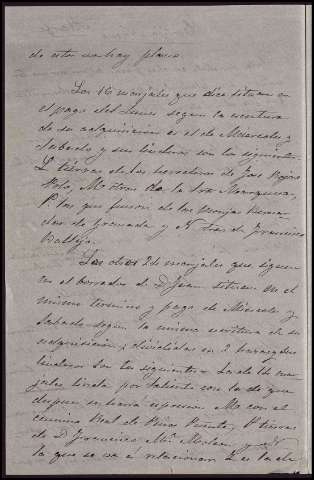 de esta no hay plano.
Los 16 marjales que dice situan en
el pago del Lunes segun la escritura
de su adquisicion es el de Miercoles y
Sabado y sus linderos son los siguientes.
L. tierras de los herederos de Jose Rojas
M. otras de la Sra Marquesa,
P. las que fueron de las monjas
de Granada y N. las de Francisco
Vallejo.
Los otros 24 marjales que siguen
en el borrador de D. Juan situan en el
mismo termino y pago de Miercoles y
Sabado segun la misma escritura de su
adquisicion; divididas en 2 hazas, sus
linderos son los siguientes. La de 14 mar-
jales linda por Saliente con la de que
despues se hará espresion. M. con el
camino Real de Pinos Puente, P. tierras
de D. Francisco Mª y N.
la que se va á relacionar. La de